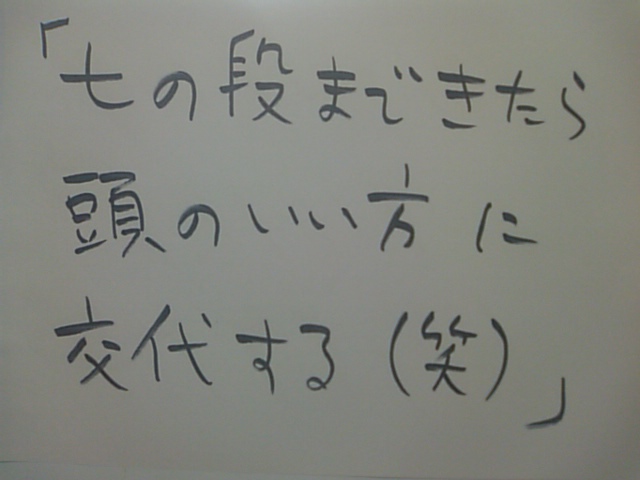 「七の段まできたら
頭のいい方に
交代する(笑)」